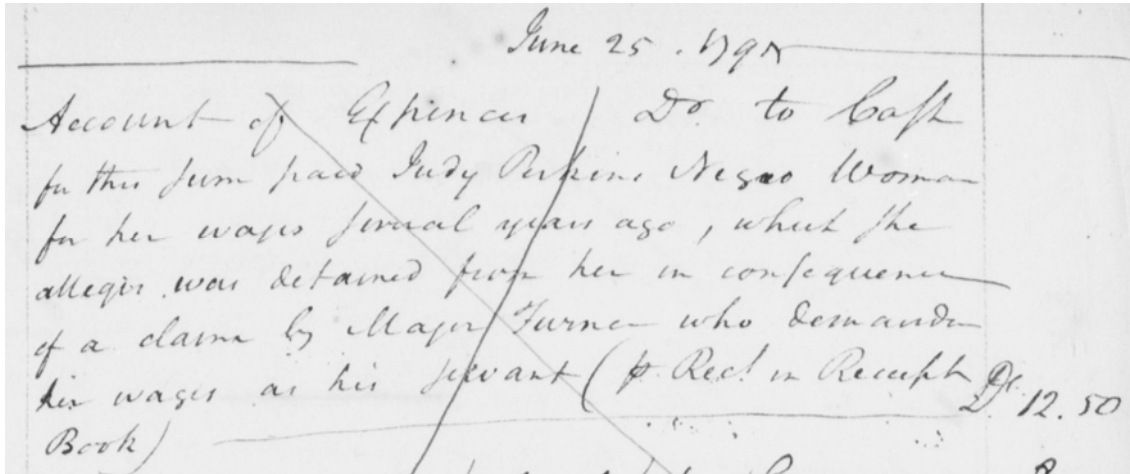 June 25. 179
Account of Expences Dr. to Cash
for this sum paid Judy Perkins Negro Woman
for her wages several years ago, which she
alleges was detained from her in consequence
of a claim by Major Turner who demanded
her wages as his servant (pr. Rect. in Receipt
Book) Ds. 12.50